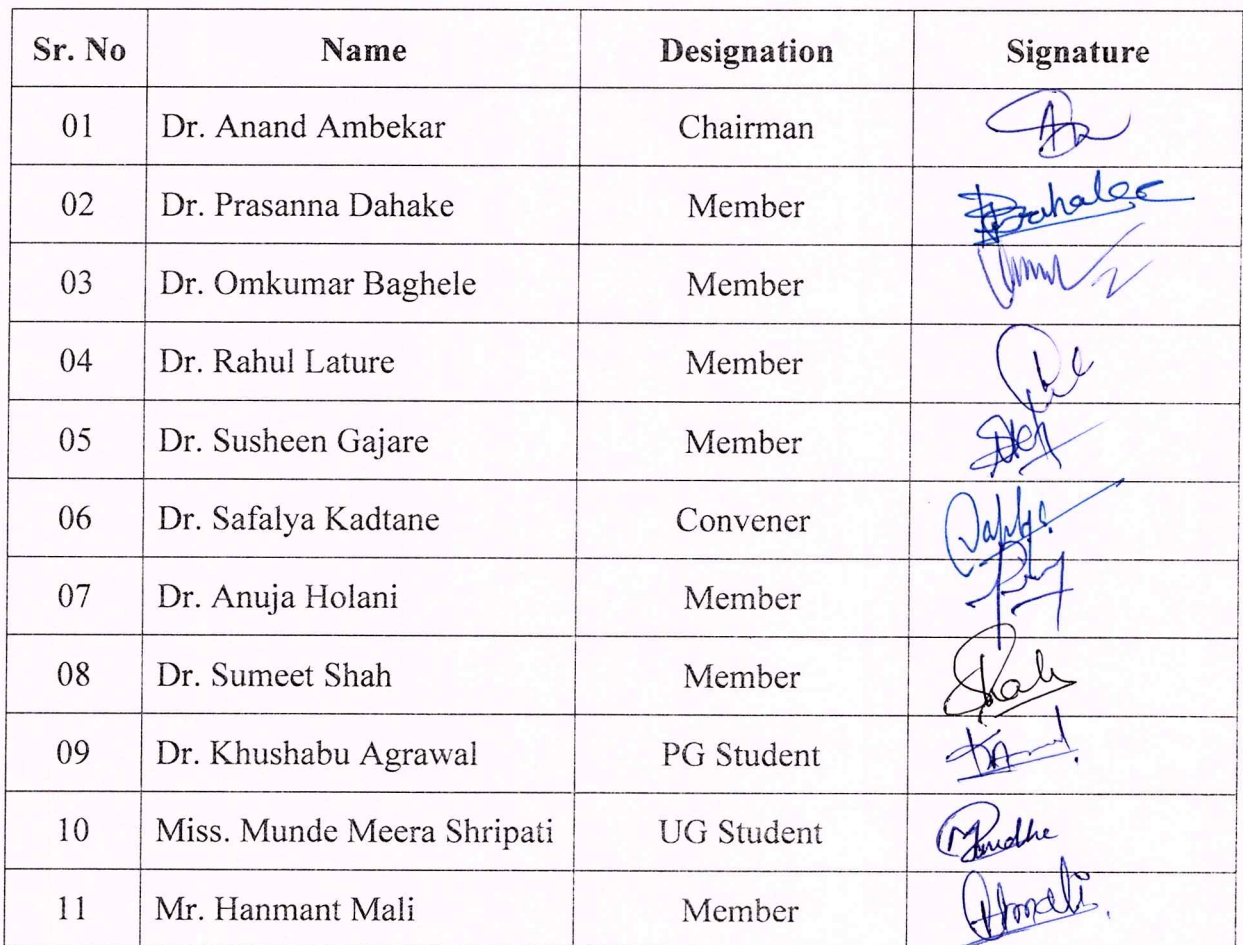 Sr. No Name Designation Signature
01 Dr. Anand Ambekar Chairman
02 Dr. Prasanna Dahake Member
03 Dr. Omkumar Baghele Member
04 Dr. Rahul Lature Member
05 Dr. Susheen Gajare Member
06 Dr. Safalya Kadtane Convener
07 Dr. Anuja Holani Member
08 Dr. Sumeet Shah Member
09 Dr. Khushabu Agrawal PG Student
10 Miss. Munde Meera Shripati UG Student
11 Mr. Hanmant Mali Member